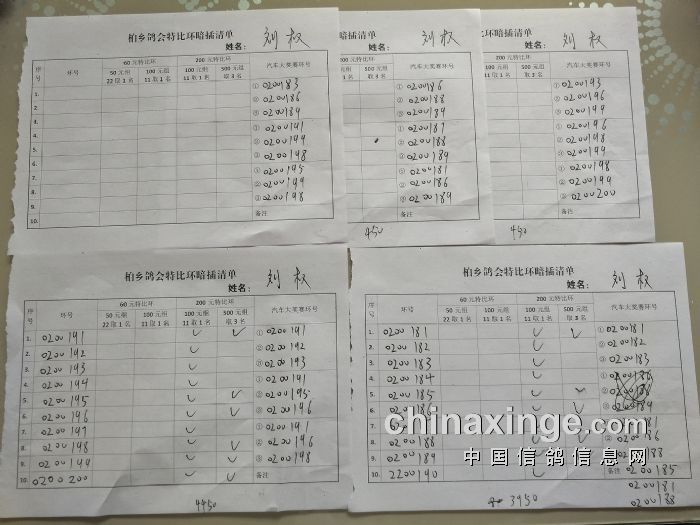 柏乡鸽会特比环暗插清单
姓名： 刘权
序号 环号 60元特比环 200元特比环 汽车大奖赛环号
50元组 22取1名 100元组 11取1名 100元组 11取1名 500元组 取3名
1. ① 0200183
2. ② 0200186
3. ③ 0200189
4. ① 0200191
5. ② 0200194
6. ③ 0200198
7. ① 0200195
8. ② 0200199
9. ③ 0200198
10. 备注
清单
姓名： 刘权
汽车大奖赛环号
500元组 取3名
① 0200186
② 0200188
③ 0200189
① 0200187
② 0200188
③ 0200189
① 0200181
② 0200186
③ 0200189
备注
450
清单
姓名： 刘权
汽车大奖赛环号
500元组 取3名
① 0200193
② 0200196
③ 0200199
① 0200196
② 0200198
③ 0200199
① 0200198
② 0200199
③ 0200200
备注
450
柏乡鸽会特比环暗插清单
姓名： 刘权
序号 环号 60元特比环 200元特比环 汽车大奖赛环号
50元组 22取1名 100元组 11取1名 100元组 11取1名 500元组 取3名
1. 0200191 ① 0200191
2. 0200192 ② 0200192
3. 0200193 ③ 0200193
4. 0200194 ① 0200191
5. 0200195 ② 0200195
6. 0200196 ③ 0200196
7. 0200197 ① 0200191
8. 0200198 ② 0200196
9. 0200199 ③ 0200198
10. 0200200 备注
4450
柏乡鸽会特比环暗插清单
姓名： 刘权
序号 环号 60元特比环 200元特比环 汽车大奖赛环号
50元组 22取1名 100元组 11取1名 100元组 11取1名 500元组 取3名
1. 0200181 ① 0200181
2. 0200182 ② 0200182
3. 0200183 ③ 0200183
4. 0200184
5. 0200185
6. 0200186
7.
8. 0200188
9. 0200189
10. 2200190 备注 0200185
0200181
0200188
3950
chinaxinge.com
中国信鸽信息网